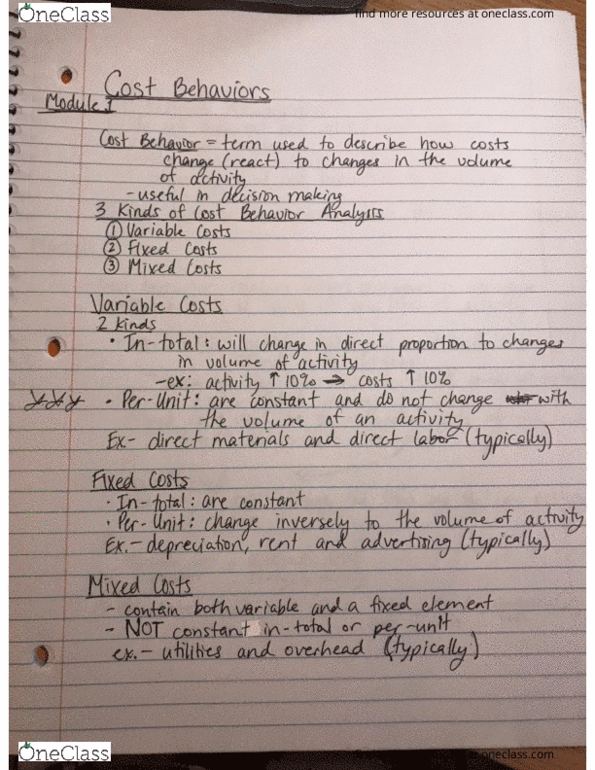 OneClass
find more resources at oneclass.com
Cost Behaviors
Module 1
Cost Behavior = term used to describe how costs
change (react) to changes in the volume
of activity
- useful in decision making
3 Kinds of Cost Behavior Analysis
① Variable Costs
② Fixed Costs
③ Mixed Costs
Variable Costs
2 kinds
• In-total: will change in direct proportion to changes
in volume of activity
-ex: activity ↑ 10% → costs ↑ 10%
• Per-Unit: are constant and do not change with
the volume of an activity
Ex- direct materials and direct labor (typically)
Fixed Costs
• In-total: are constant
• Per-Unit: change inversely to the volume of activity
Ex.- depreciation, rent and advertising (typically)
Mixed Costs
- contain both variable and a fixed element
- NOT constant in-total or per-unit
ex.- utilities and overhead (typically)
OneClass
oneclass.com